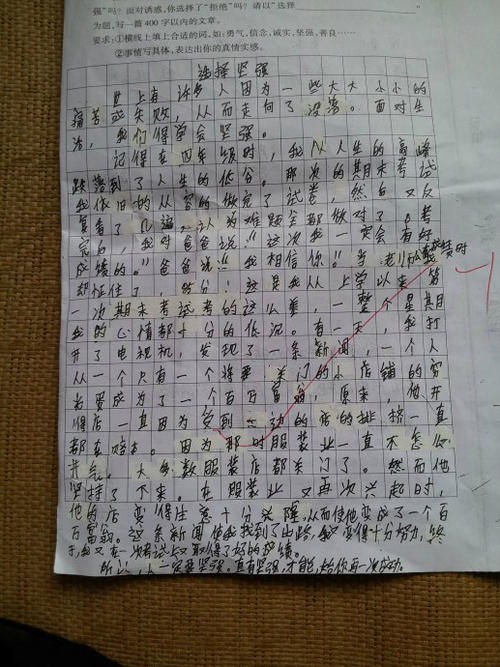 强”吗？面对诱惑，你选择了“拒绝”吗？请以“选择
为题，写一篇400字以内的文章。
要求：①横线上填上合适的词，如：勇气，信念，诚实，坚强，善良……
②事情写具体，表达出你的真情实感。
选择坚强
世上有许多人因为一些大大小小的
痛苦或失败，从而走向了没落。面对生
活，我们得学会坚强。
记得在四年级时，我从人生的高峰
跌落到了人生的低谷。那次的期末考试
我依旧的从容的做完了试卷，然后又反
复看了几遍，认为难题全都做对了。考
完后，我对爸爸说：“这次我一定会有好
成绩的。”爸爸说：“我相信你！”当老师公布成绩时
却怔住了，分！这是我从上学以来第
一次期末考试考的这么差，一整个星期
我的心情都十分的低沉。有一天，我打
开了电视机，发现了一条新闻，一个人
从一个只有一个将要关门的小店铺的穷
光蛋成为了一个百万富翁，原来，他开
得店一直因为受到的店的排挤一直
都在赔本。因为那时服装业一直不怎么
景气，大多数服装店都关门了。然而他
坚持了下来。在服装业又再次兴起时，
他的店变得生意十分兴隆，从而使他变成了一个百
万富翁。这条新闻使我找到了出路，我变得十分努力，终
于，我又在一次考试上又取得了好的成绩。
所以，人一定要坚强。只有坚强，才能，给你再一次成功。